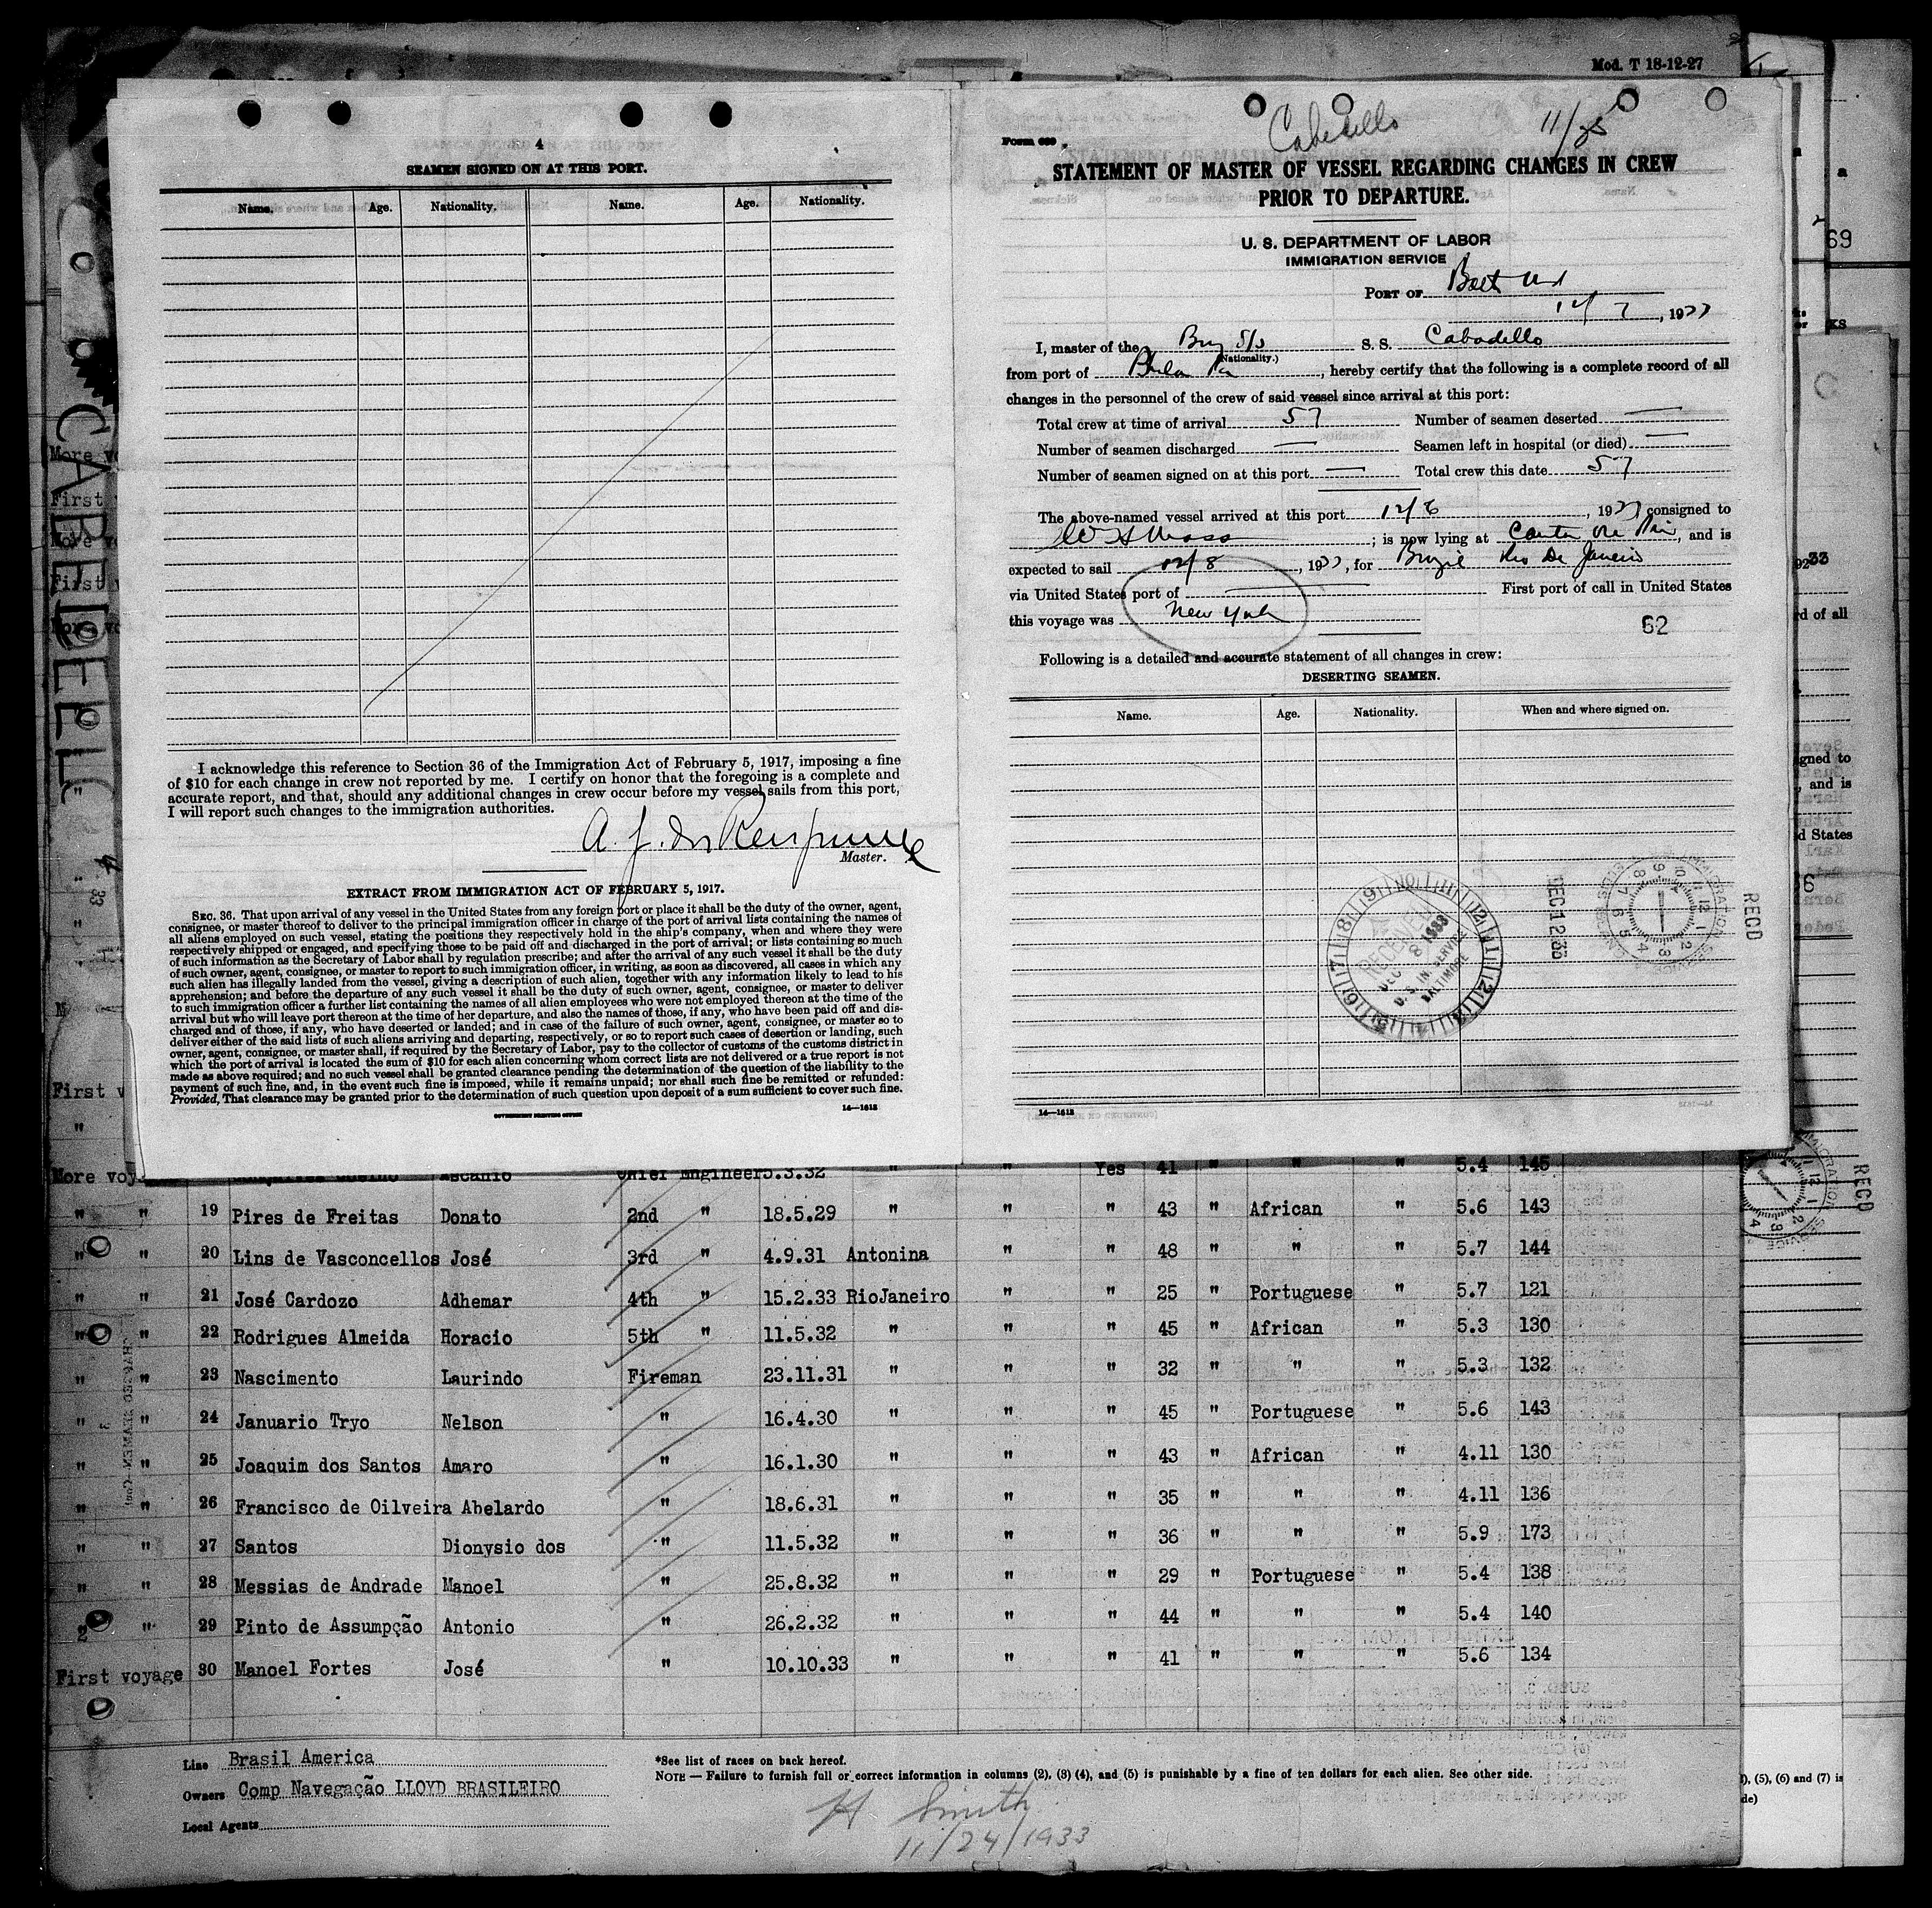 Mod. T 18-12-27
4
SEAMEN SIGNED ON AT THIS PORT.
Name. Age. Nationality. Name. Age. Nationality.
I acknowledge this reference to Section 36 of the Immigration Act of February 5, 1917, imposing a fine
of $10 for each change in crew not reported by me. I certify on honor that the foregoing is a complete and
accurate report, and that, should any additional changes in crew occur before my vessel sails from this port,
I will report such changes to the immigration authorities.
Master.
EXTRACT FROM IMMIGRATION ACT OF FEBRUARY 5, 1917.
SEC. 36. That upon arrival of any vessel in the United States from any foreign port or place it shall be the duty of the owner, agent,
consignee, or master thereof to deliver to the principal immigration officer in charge of the port of arrival lists containing the names of
all aliens employed on such vessel, stating the positions they respectively hold in the ship's company, when and where they were
respectively shipped or engaged, and specifying those to be paid off and discharged in the port of arrival; or lists containing so much
of such information as the Secretary of Labor shall by regulation prescribe; and after the arrival of any such vessel it shall be the duty
of such owner, agent, consignee, or master to report to such immigration officer, in writing, as soon as discovered, all cases in which any
such alien has illegally landed from the vessel, giving a description of such alien, together with any information likely to lead to his
apprehension; and before the departure of any such vessel it shall be the duty of such owner, agent, consignee, or master to deliver
to such immigration officer a further list containing the names of all alien employees who were not employed thereon at the time of the
arrival but who will leave port thereon at the time of her departure, and also the names of those, if any, who have been paid off and dis-
charged and of those, if any, who have deserted or landed; and in case of the failure of such owner, agent, consignee, or master so to
deliver either of the said lists of such aliens arriving and departing, respectively, or so to report such cases of desertion or landing, such
owner, agent, consignee, or master shall, if required by the Secretary of Labor, pay to the collector of customs of the customs district in
which the port of arrival is located the sum of $10 for each alien concerning whom correct lists are not delivered or a true report is not
made as above required; and no such vessel shall be granted clearance pending the determination of the question of the liability to the
payment of such fine, and, in the event such fine is imposed, while it remains unpaid; nor shall such fine be remitted or refunded:
Provided, That clearance may be granted prior to the determination of such question upon deposit of a sum sufficient to cover such fine.
GOVERNMENT PRINTING OFFICE 14—1613
Cabedello 11/25
Form 689
STATEMENT OF MASTER OF VESSEL REGARDING CHANGES IN CREW
PRIOR TO DEPARTURE.
U. S. DEPARTMENT OF LABOR
IMMIGRATION SERVICE
PORT OF Balt Md
12/7, 1933
I, master of the Braz S/S S. S. Cabadello
(Nationality.)
from port of Phila Pa, hereby certify that the following is a complete record of all
changes in the personnel of the crew of said vessel since arrival at this port:
Total crew at time of arrival 57 Number of seamen deserted —
Number of seamen discharged — Seamen left in hospital (or died) —
Number of seamen signed on at this port — Total crew this date 57
The above-named vessel arrived at this port 12/6, 1933 consigned to
; is now lying at , and is
expected to sail 12/8, 1933, for Brazil Rio De Janeiro
via United States port of — First port of call in United States
this voyage was New York
62
Following is a detailed and accurate statement of all changes in crew:
DESERTING SEAMEN.
Name. Age. Nationality. When and where signed on.
RECEIVED
DEC 8 1933
U. S. IM. SERVICE
BALTIMORE
DEC 12 33
RECD
14—1613
CABEDELLO
More voy Ascanio Chief Engineer 5.3.32 " " Yes 41 " " " 5.4 145
" " 19 Pires de Freitas Donato 2nd " 18.5.29 " " " 43 " African " 5.6 143
" " 20 Lins de Vasconcellos José 3rd " 4.9.31 Antonina " " 48 " " " 5.7 144
" " 21 José Cardozo Adhemar 4th " 15.2.33 RioJaneiro " " 25 " Portuguese " 5.7 121
" " 22 Rodrigues Almeida Horacio 5th " 11.5.32 " " " 45 " African " 5.3 130
" " 23 Nascimento Laurindo Fireman 23.11.31 " " " 32 " " " 5.3 132
" " 24 Januario Tryo Nelson " 16.4.30 " " " 45 " Portuguese " 5.6 143
" " 25 Joaquim dos Santos Amaro " 16.1.30 " " " 43 " African " 4.11 130
" " 26 Francisco de Oilveira Abelardo " 18.6.31 " " " 35 " " " 4.11 136
" " 27 Santos Dionysio dos " 11.5.32 " " " 36 " " " 5.9 173
" " 28 Messias de Andrade Manoel " 25.8.32 " " " 29 " Portuguese " 5.4 138
2 " 29 Pinto de Assumpção Antonio " 26.2.32 " " " 44 " " " 5.4 140
First voyage 30 Manoel Fortes José " 10.10.33 " " " 41 " " " 5.6 134
Line Brasil America
Owners Comp Navegação LLOYD BRASILEIRO
Local Agents
*See list of races on back hereof.
NOTE — Failure to furnish full or correct information in columns (2), (3) (4), and (5) is punishable by a fine of ten dollars for each alien. See other side.
H Smith
11/24/1933
a
69
33
rd of all
gned to
, and is
d States
RECD
), (5), (6) and (7) is
de)